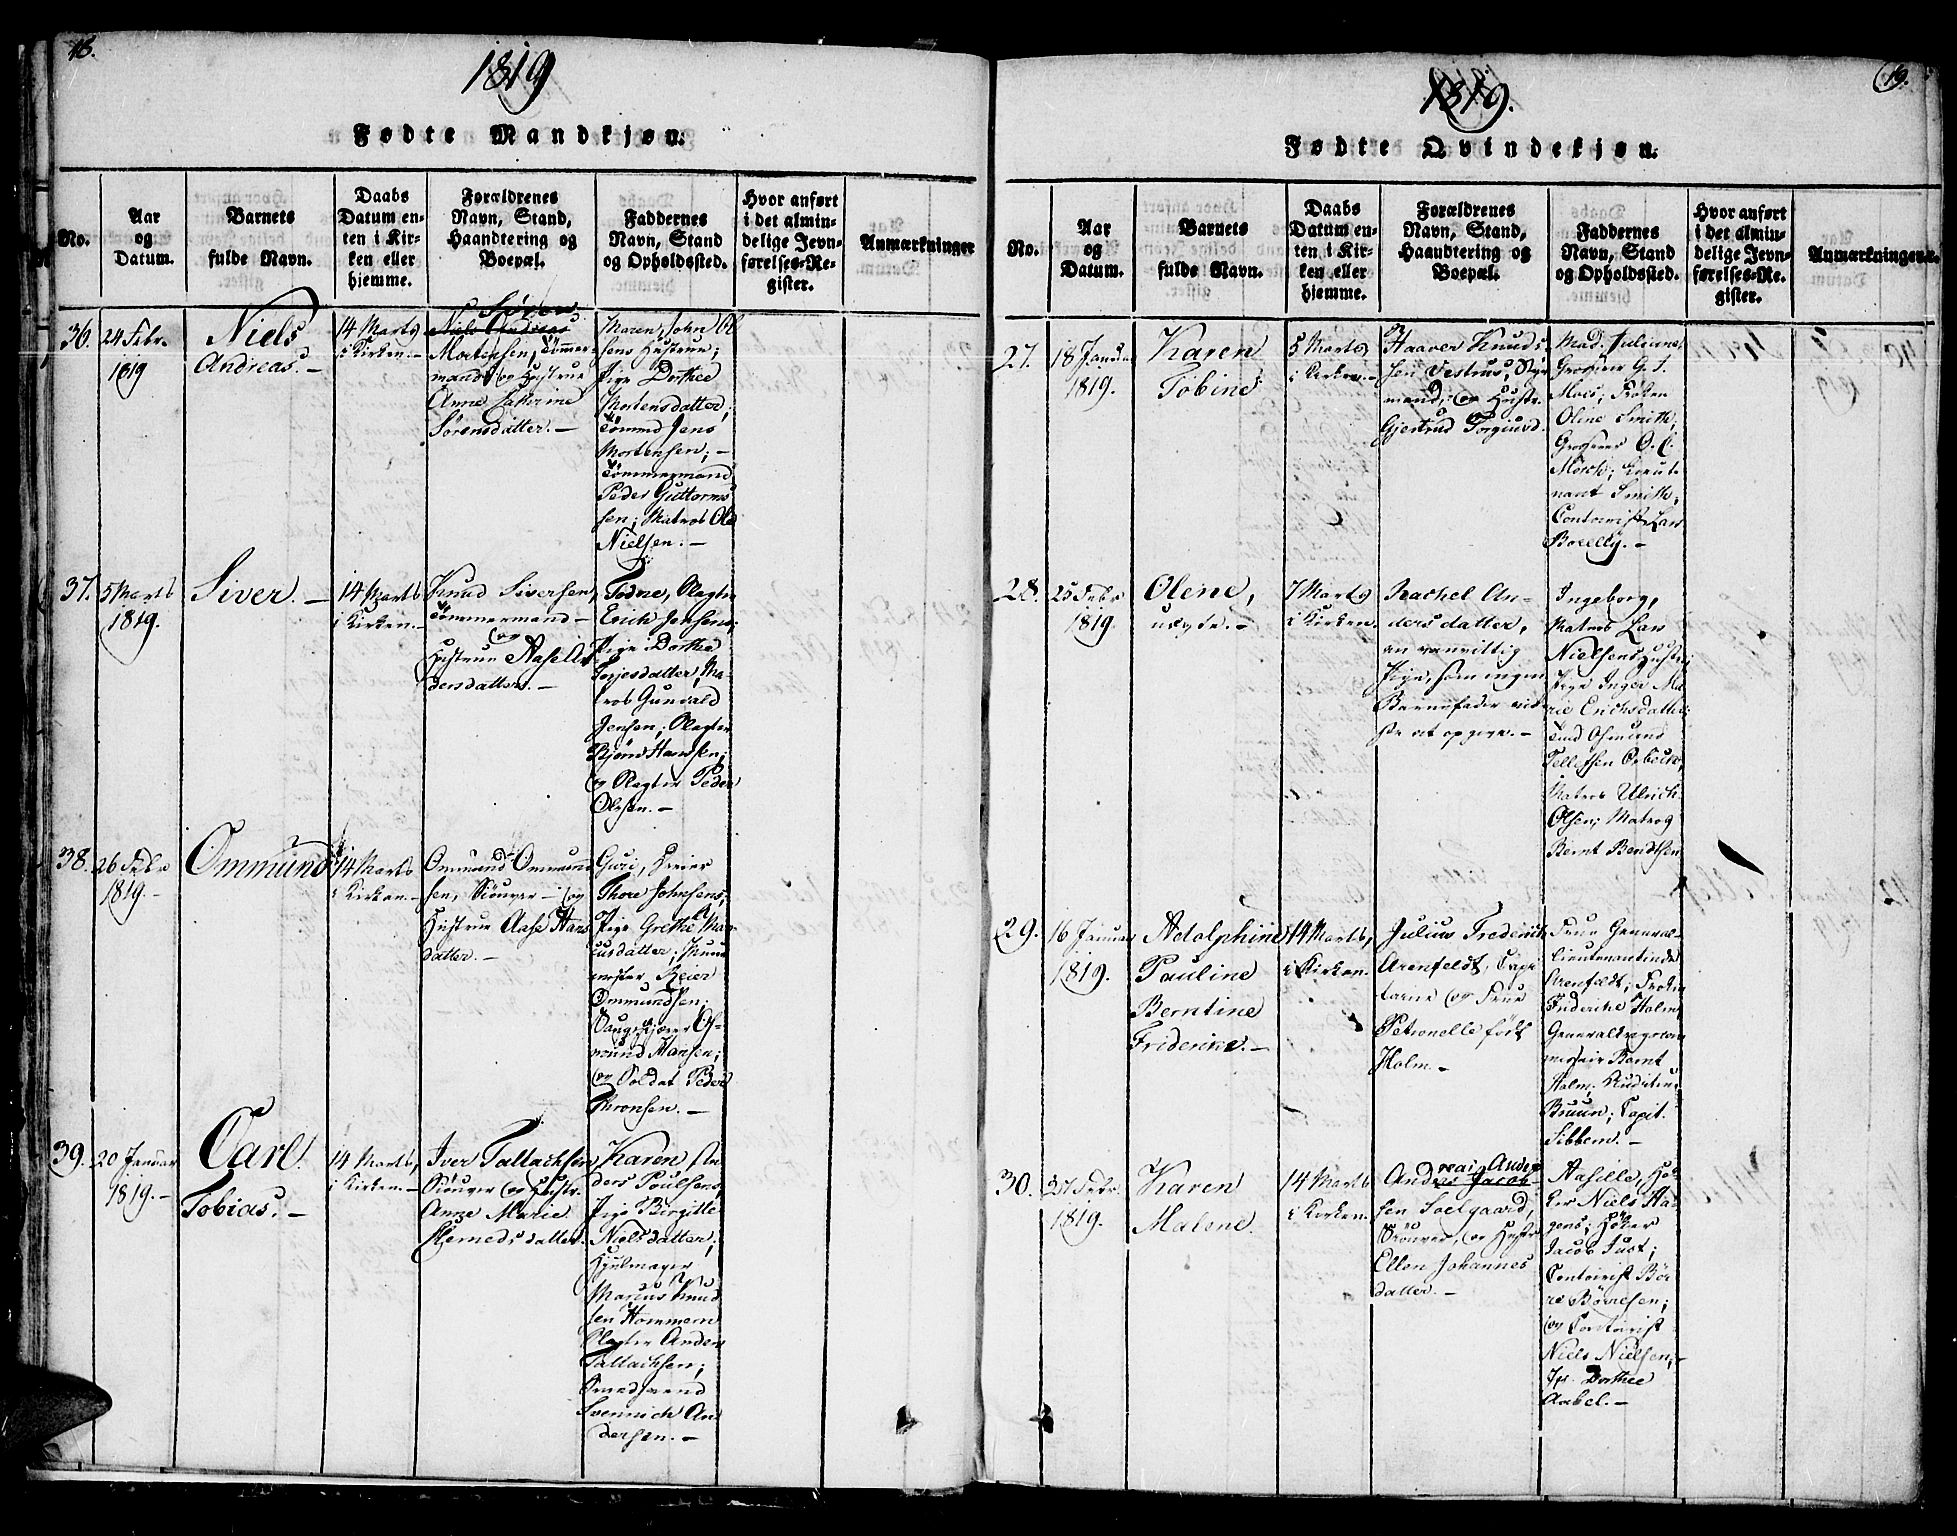 18.
1819
Fødte Mandkjøn.
No.
Aar
og
Datum.
Barnets
fulde Navn.
Daabs
Datum en-
ten i Kir-
ken eller
hjemme.
Forældrenes
Navn, Stand,
Haandtering og
Boepæl.
Faddernes
Navn, Stand
og Opholdssted.
Hvor anført
i det almin-
delige Jevn-
førelses-Re-
gister.
Anmærkninger
36.
24 Febr.
1819
Niels
Andreas. -
14 Marts
i Kirken. -
Søren
Niels Andreas
Mortensen, Tømmer-
mand, og Hustrue
Anne Cathrine
Sørensdatter. -
Maren, John Ol
sens Hustrue;
Pige Dorthee
Mortensdatter,
Tømmd Jens
Mortensen; -
Tømmermand
Peder Guttorms
sen; Matros Ole
Nielsen. -
37.
5 Marts
1819.
Siver. -
14 Marts
i Kirken. -
Knud Siversen,
Tømmermand -
og
Hustrue Aasell
dersdatter. -
Todne, Olagtn
Erich Jensens;
Pige Dorthe
Terjesdatter, Ma-
tros Gunvald
Jensen; Olagtn
Hansen;
og Olagtn Peder
Olsen. -
38.
26 Febr
1819. -
Ommund
14 Marts
i Kirken. -
Ommund Ommund
sen, Siouver - og
Hustrue Aase Hans
datter. -
Guri,
Thore Johnsens,
Pige Grethe Mar
cusdatter;
Reier
Ommundsen;
Os-
mund Hansen;
og Soldat Peder
Thronsen. -
39.
20 Januar
1819. -
Carl
Tobias. -
14 Marts,
i Kirken. -
Iver Tallachsen
Siouver og Hustr.
Anne Marie
datter.
Karen An
ders Poulsens,
Pige Birgitte
Nielsdatter,
Hjulmager
Marcus Knud
sen Hommern
Olagtn Anders
Tallachsen;
Smedsvend
Svennich An
dersen. -
19.
1819.
Fødte Qvindekjøn.
No.
Aar
og
Datum.
Barnets
fulde Navn.
Daabs
Datum en-
ten i Kir-
ken eller
hjemme.
Forældrenes
Navn, Stand,
Haandtering og
Boepæl.
Faddernes
Navn, Stand
og Opholdssted.
Hvor anført
i det almin-
delige Jevn-
førelses-Re-
gister.
Anmærkninger.
27.
18 Janua
1819.
Karen
Tobine
5 Marts
i Kirken. -
Haaver Knud
sen Vestrus, Styr
mand, og Hustr.
Gjertrud Torgiusd.
Mad. Juliane,
Grosserer G. J.
Moes; Frøken
Oline Smith;
Grosserer O. C.
Mørch; Lieute
nant Smith;
Contoirist Lars
Boelly. -
28.
25 Febr
1819.
Olene,
uægte. -
7 Marts
i Kirken.
Rachel An-
dersdatter,
en vanvittig
Pige, som ingen
Barnefader vid
ste at opgive. -
Ingeborg,
Matros Lars
Nielsens Hustr;
Pige Inger Ma
rie Erichsdatter;
Osmund
Tellefsen Orbeck,
Matros Ulrich
Olsen; Matros
Bernt Bendtsen
29.
16 Januar
1819.
Adolphine
Pauline
Berntine
Friderike. -
14 Marts,
i Kirken.
Julius Frederich
Arenfeldt, Capi
taine og Frue
Petronelle født
Holm. -
Frue General-
lieutenantinde
Arenfeldt; Frøken
Friderike Holm,
Generalkrigscom
mesair Bernt
Holm; Auditeur
Bruun; Capit.
Sibbern. -
30.
Febr.
1819.
Karen
Malene.
14 Marts
i Kirken.
reas Ander
Anders Jacob-
sen Soelgaard,
Siouver, og Hustr
Ellen Johannes
datter. -
Aasille, Hø-
ker Niels Haa-
gens; Høker
Jacob Just;
Contoirist Bør-
re Børresen;
og Contoirist
Niels Nielsen, -
Jfr. Dorthee
Aabel. -